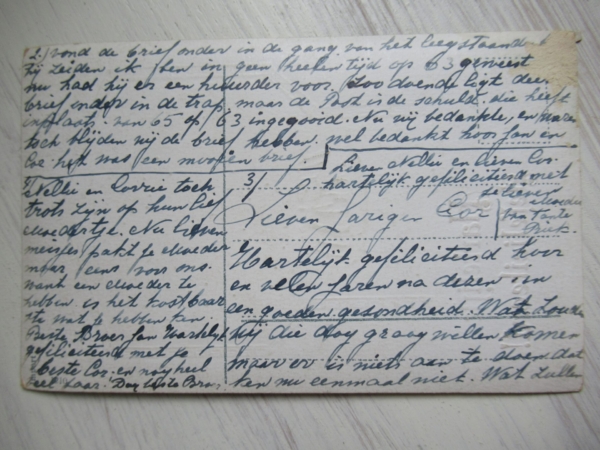 2/ vond de brief onder in de gang van het leegstaande
zij zeiden ik ben in geen heelen tijd op 63 geweest
nu had hij er een huurder voor. Zoo doende ligt deze
brief onder in de trap, maar de Post is de schuld. die heeft
inplaats van 65 op 63 ingegooid. Nu wij bedankte, en waren
toch blijden wij de brief hebben. wel bedankt hoor Jan en
Co het was een mooien brief.
Nellie en Corrie toch
trots zijn op hun lief
Moedertje. Nu lieven
meisjes pakt je Moeder
maar eens voor ons.
want een Moeder te
hebben is het kostbaar
ste wat te hebben kan.
Beste Broer Jan Hartelijk
gefiliciteerd met je
beste Co. en nog heel
veel Jaar. Dag Beste Broer
Lieve Nellie en Lieve Co.
3/ hartelijk gefiliciteerd met
je lieven
Moeder
van Tante
Riek.
Lieven Jarigen Cor
Hartelijk gefiliciteerd hoor
en velen Jaren na dezen in
een goeden gesondheid. Wat zoude
wij die dag graag willen komen
maar er is niets aan te doen dat
kan nu eenmaal niet. Wat zullen